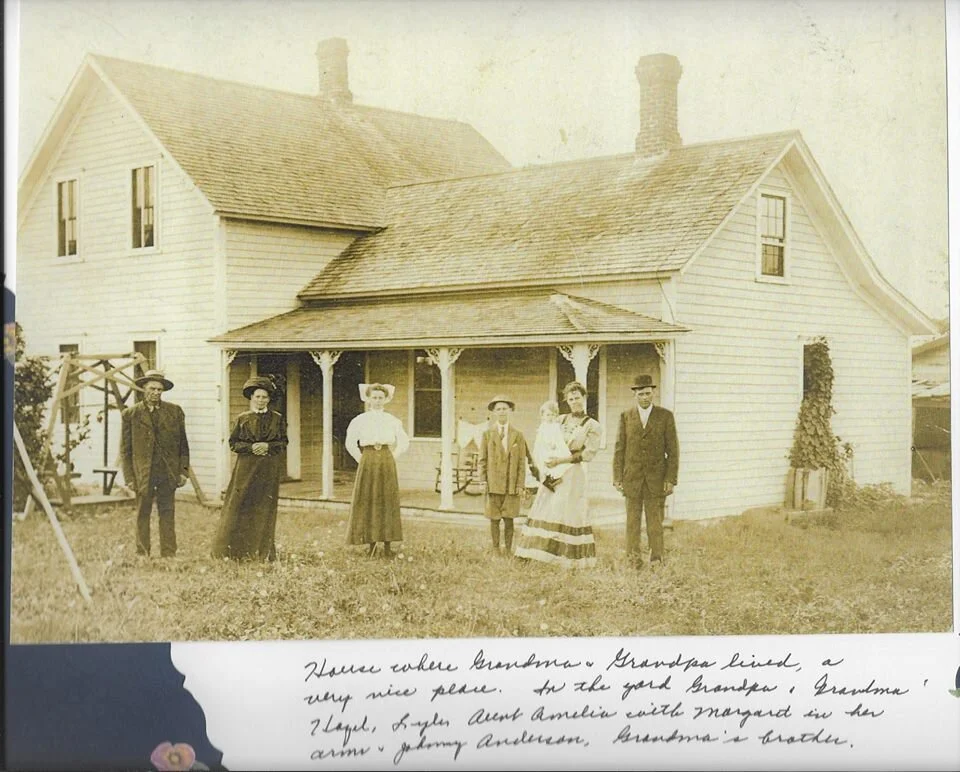 House where Grandma & Grandpa lived, a
very nice place. In the yard Grandpa & Grandma
Hazel, Lyle, Aunt Amelia with Margaret in her
arms & Johnny Anderson, Grandma's brother.